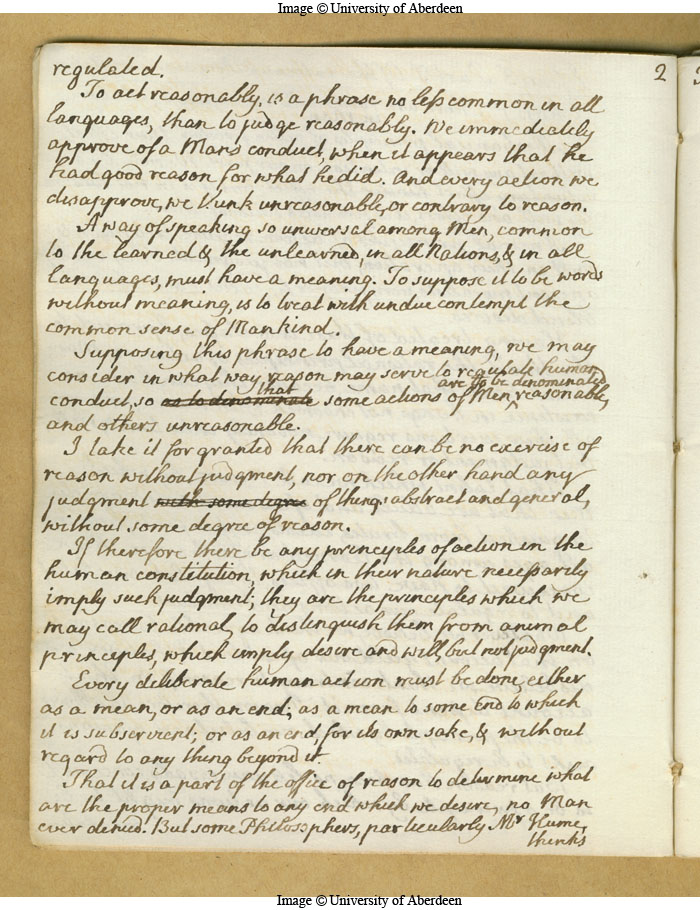 Image © University of Aberdeen
2
regulated.
To act reasonably, is a phrase no less common in all
languages, than to judge reasonably. We immediately
approve of a Mans conduct, when it appears that he
had good reason for what he did. And every action we
disapprove, we think unreasonable, or contrary to reason.
A way of speaking so universal among Men, common
to the learned & the unlearned, in all Nations, & in all
languages, must have a meaning. To suppose it to be words
without meaning, is to treat with undue contempt the
common sense of Mankind.
Supposing this phrase to have a meaning, we may
consider in what way, reason may serve to regulate human
that are to be denominated
conduct, so as to denominate some actions of Men ^ reasonable,
and others unreasonable.
I take it for granted that there can be no exercise of
reason without judgment, nor on the other hand any
judgment with some degree of things abstract and general,
without some degree of reason.
If therefore there be any principles of action in the
human constitution, which in their nature necessarily
imply such judgment; they are the principles which we
may call rational, to distinguish them from animal
principles, which imply desire and will, but not judgment.
Every deliberate human action must be done, either
as a mean, or as an end; as a mean to some End to which
it is subservient; or as an end, for its own sake, & without
regard to any thing beyond it.
That it is a part of the office of reason to determine what
are the proper means to any end which we desire, no Man
ever denied. But some Philosophers, particularly Mr Hume,
thinks
Image © University of Aberdeen